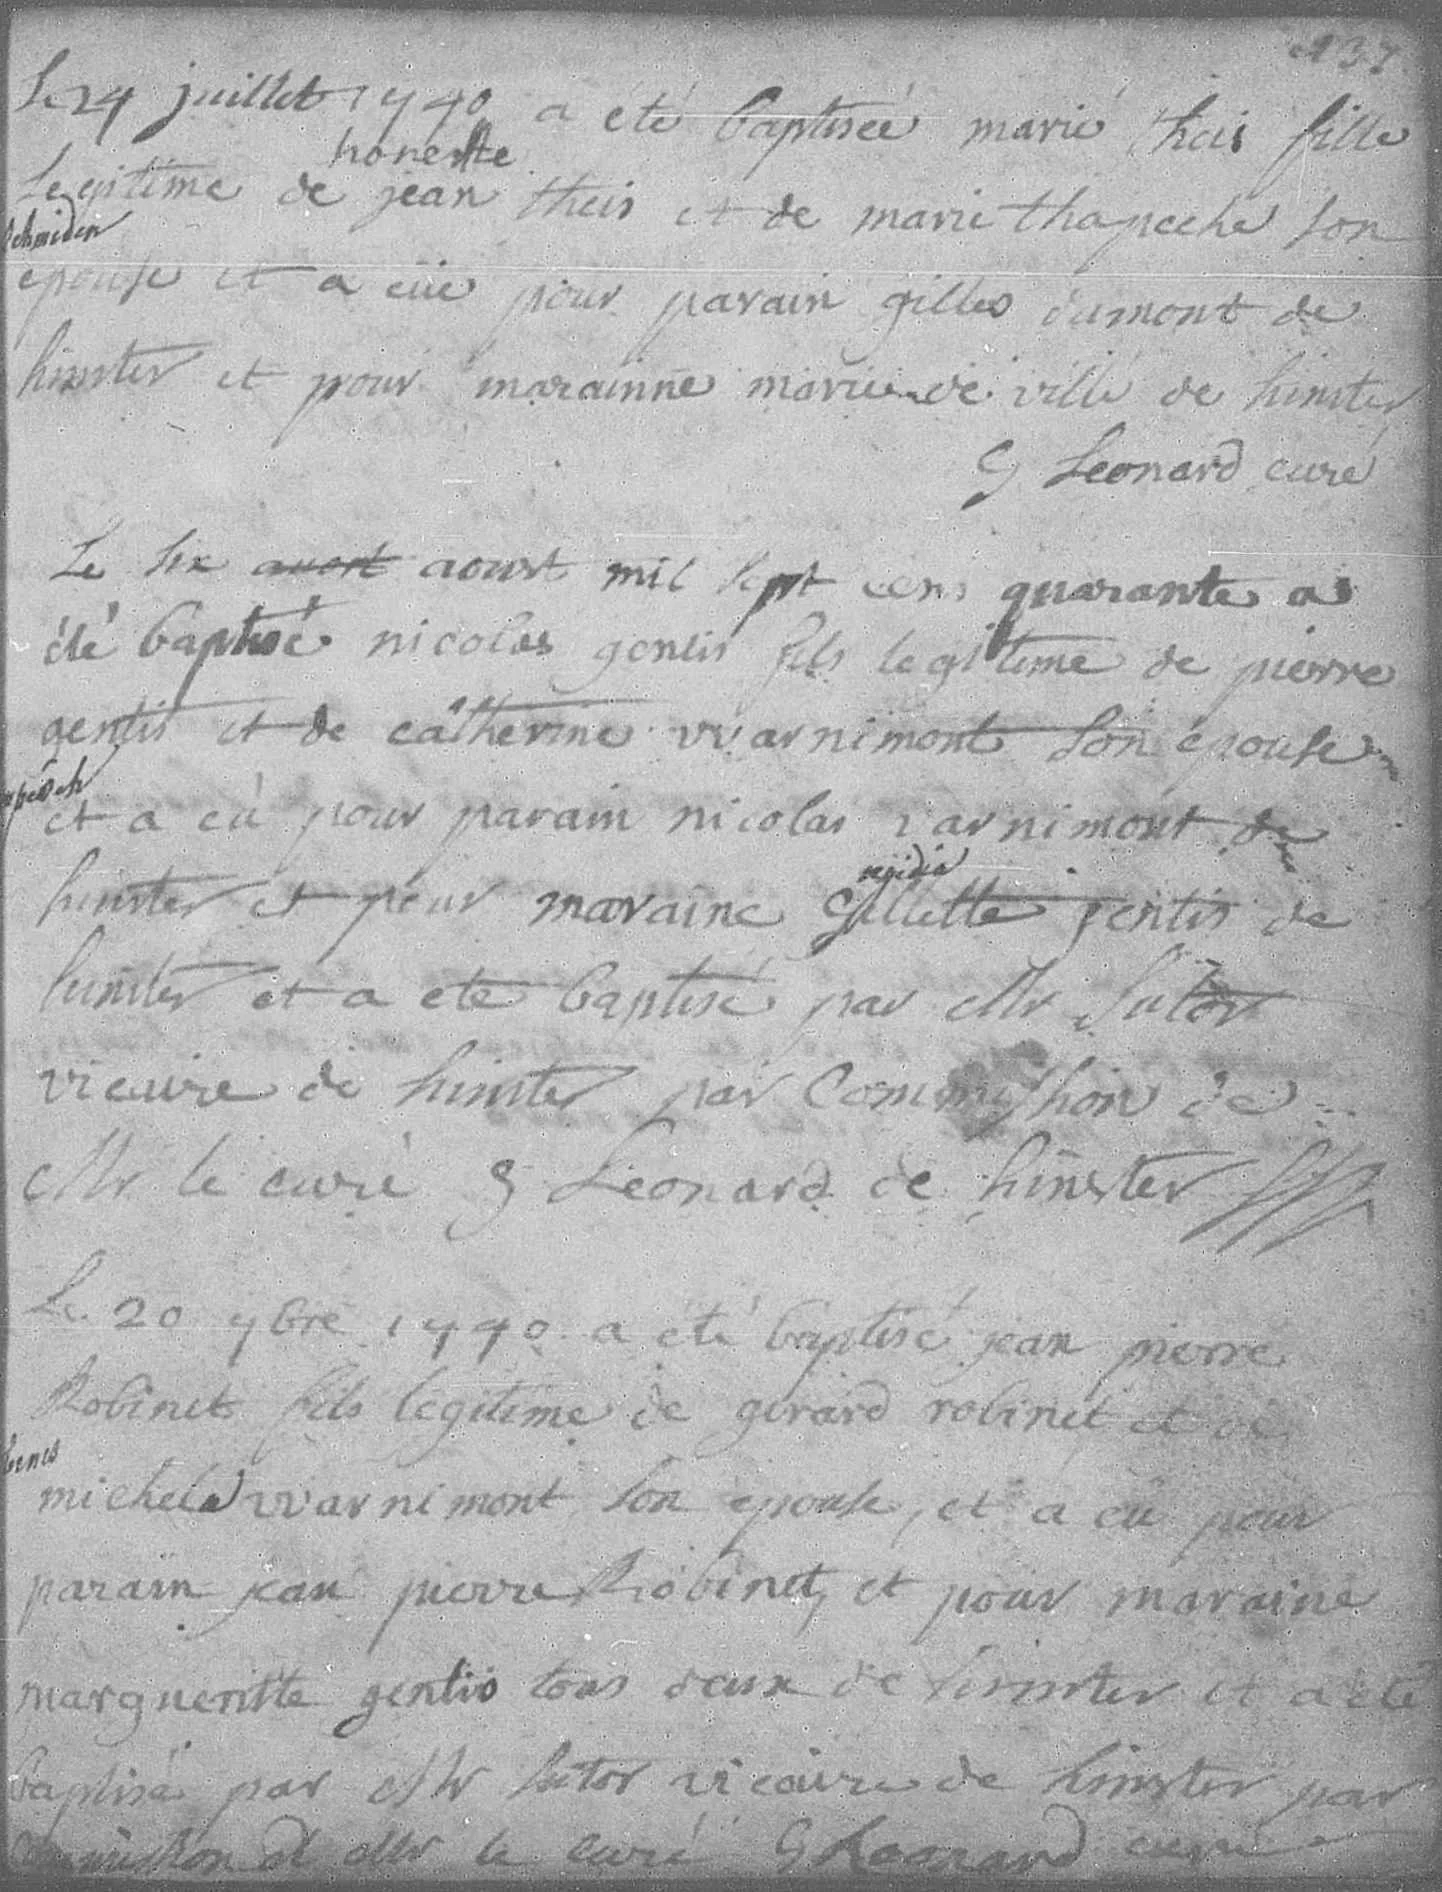 137
Le 24 juillet 1740 a été baptiseé marie theis fille
honeste
Legitime de jean theis et de marie thapeche son
schmiden
epouse et a eüe pour parain gilles dumont de
hinster et pour marainne marie de ville de hinster
G Leonard curé
Le six aoust aoust mil sept cens quarante a
été baptisé nicolas gentis fils legitime de pierre
gentis et de catherine warnimont son epouse
et a eû pour parain nicolas varnimont de
egidia
hinster et pour maraine Gillette gentis de
hinster et a eté baptisé par Mr Sutor
vicaire de hinster par Commission de
Mr le curé G Leonard de hinster
Le 20 7bre 1740 a été baptisé jean pierre
Robinet fils legitime de gerard robinet et de
michele warnimont son epouse, et a eü pour
parain jean pierre Robinet, et pour maraine
margueritte gentis tous deux de hinster et a été
baptisé par Mr Sutor vicaire de hinster par
commission de Mr le curé G Leonard curé